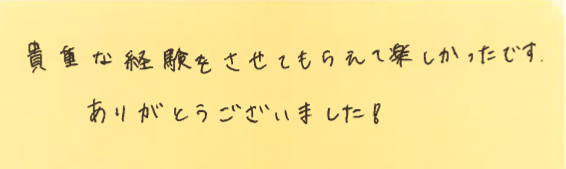 貴重な経験をさせてもらえて楽しかったです.
ありがとうございました!